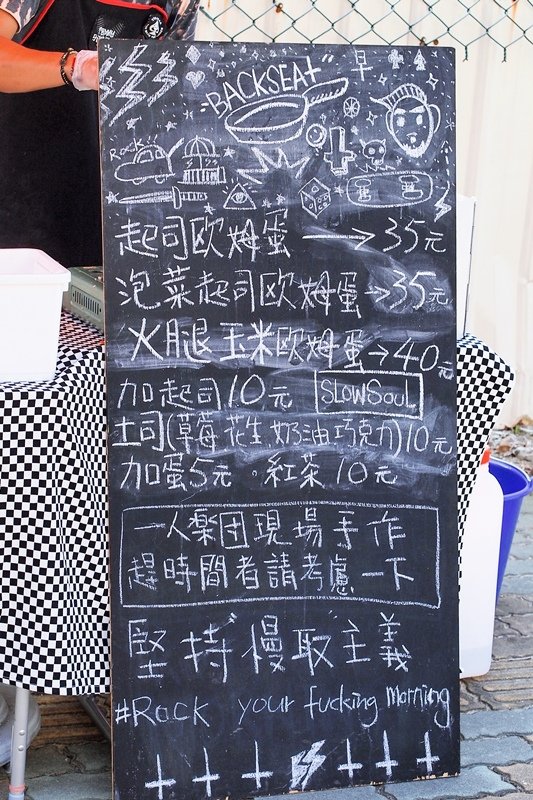 BACKSEAt 早
Rock
起司歐姆蛋 → 35元
泡菜起司歐姆蛋 → 35元
火腿玉米歐姆蛋 → 40元
加起司10元 SLOWSOUL
土司(草莓花生奶油巧克力)10元
加蛋5元。紅茶10元
一人楽団現場手作
趕時間者請考慮一下
堅持慢取主義
#Rock your fucking Morning